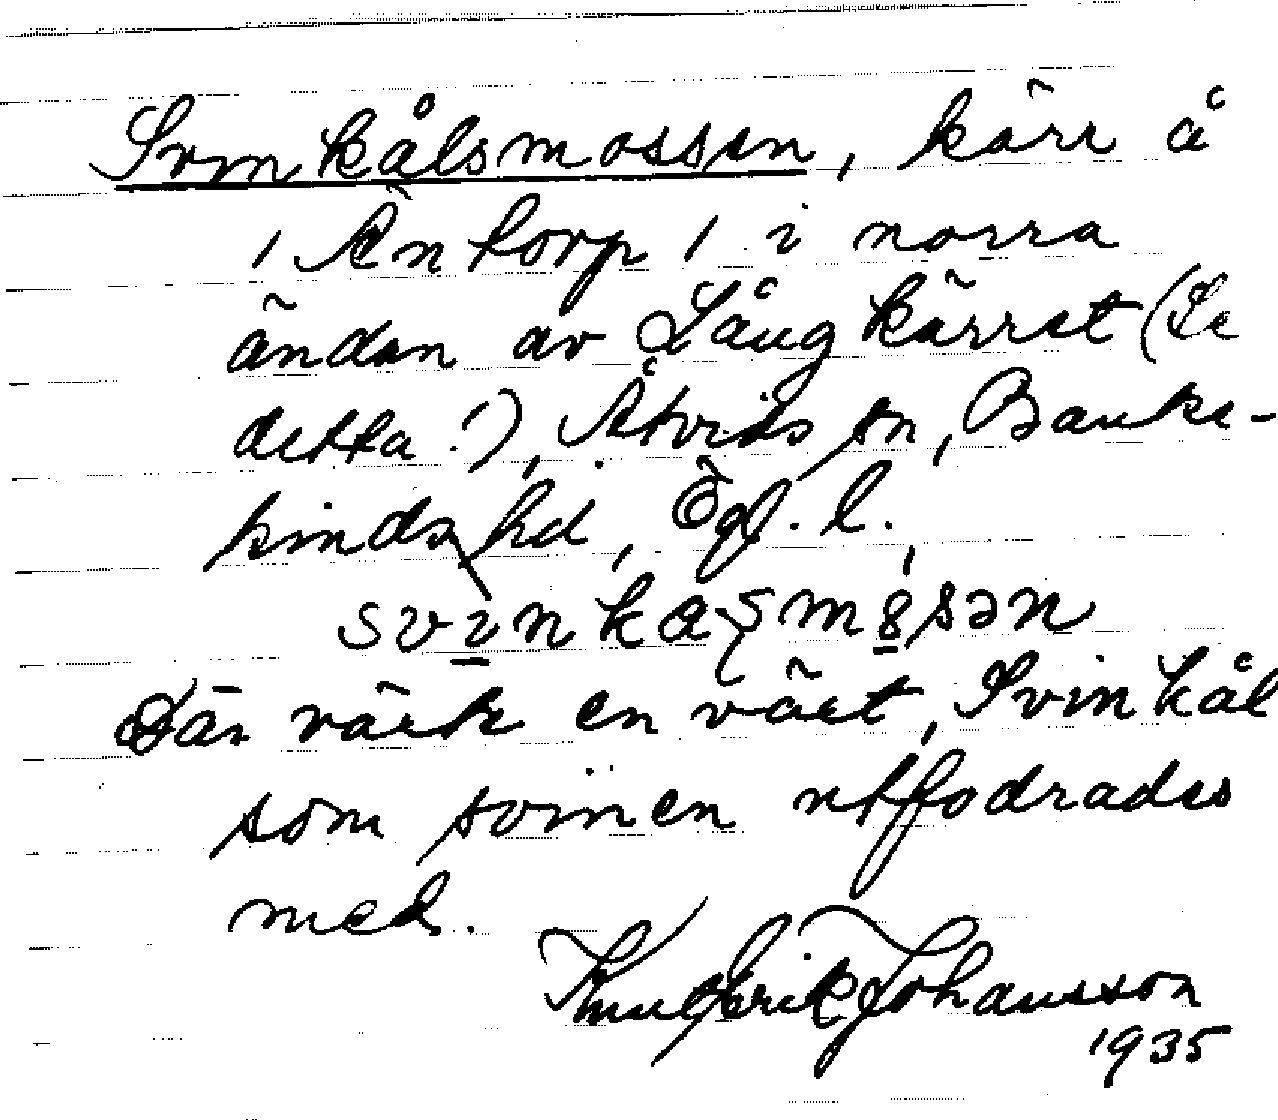 Svinkålsmossen, kärr å
/ Äntorp / i norra
ändan av Långkärret (Se
detta!), Åtvids sn, Banke-
kinds hd, Ögl. l.,
svinkaʂmɞsən
Där växte en växt, Svinkål
som svinen utfodrades
med.
Knut Erik Johansson
1935